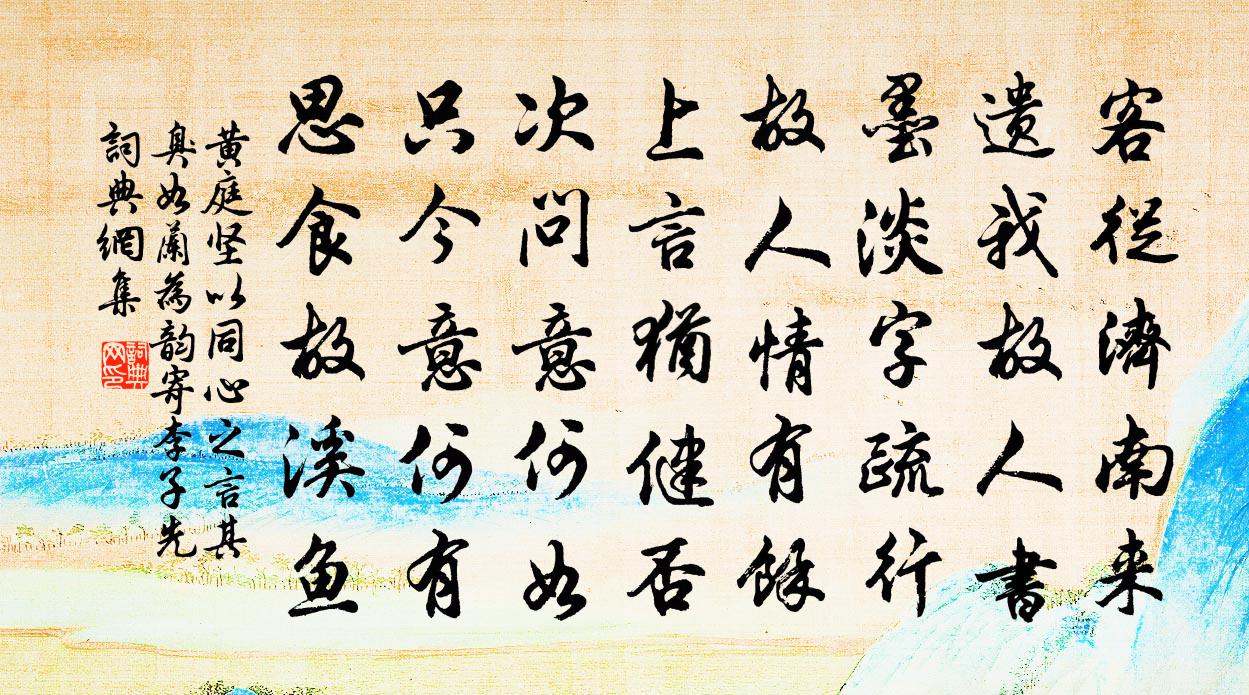 客從濟南来
遗我故人書
墨淡字疏行
故人情有餘
上言猶健否
次問意何如
只今意何有
思食故溪魚
黄庭坚以同心之言其
臭如蘭為韵寄李子先
詞典網集
詞典网印